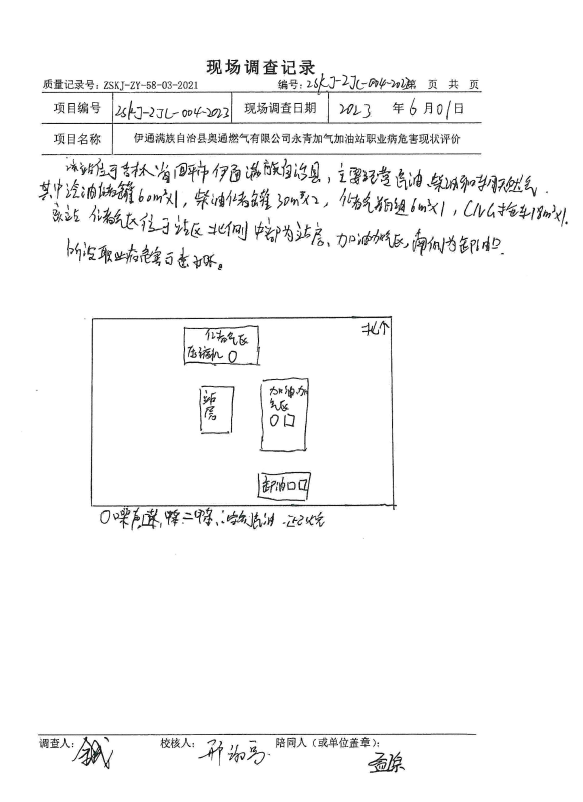 现场调查记录
质量记录号：ZSKJ-ZY-58-03-2021 编号：ZSKJ-ZJL-004-2023第 页 共 页
项目编号 ZSKJ-ZJL-004-2023 现场调查日期 2023 年 6 月 01 日
项目名称 伊通满族自治县奥通燃气有限公司永青加气加油站职业病危害现状评价
该站位于吉林省四平市伊通满族自治县，主要经营汽油、柴油和车用天然气
其中汽油储罐60m³×1，柴油储罐30m³×2，储气瓶组6m³×1，CNG拖车18m³×1.
该站储气区位于站区北侧 中部为站房、加油加气区，南侧为卸油口
所设职业病危害
北↑
储气区
压缩机 〇
站房
加油加
气区
〇 □
卸油口□
〇噪声 □苯，甲苯，二甲苯，溶剂汽油
调查人： 校核人： 陪同人（或单位盖章）：